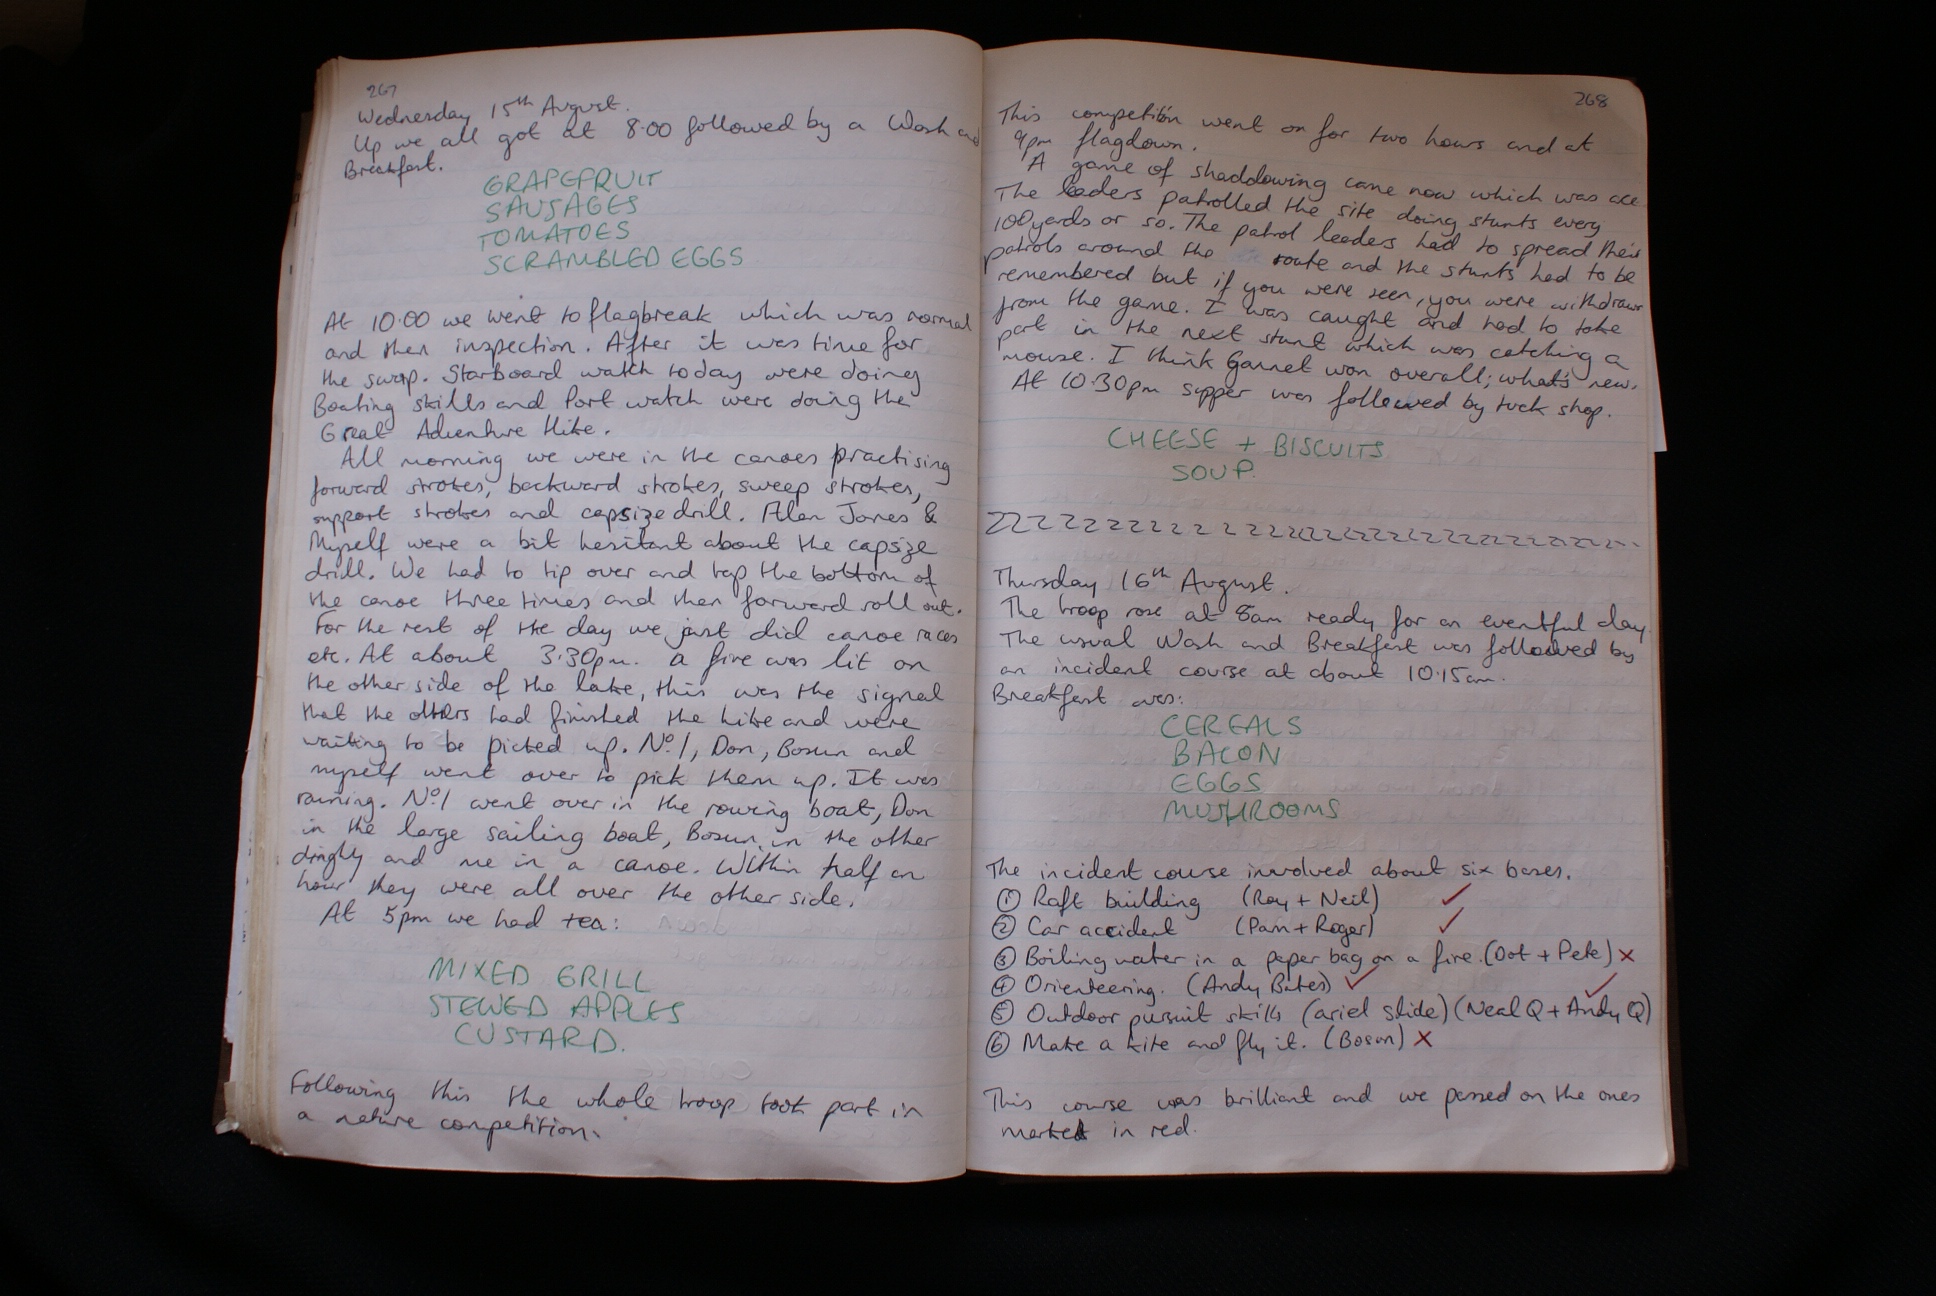 267
Wednesday 15th August.
Up we all got at 8.00 followed by a Wash and
Breakfast.
GRAPEFRUIT
SAUSAGES
TOMATOES
SCRAMBLED EGGS
At 10.00 we went to flagbreak which was normal
and then inspection. After it was time for
the swap. Starboard watch today were doing
Boating skills and Port watch were doing the
Great Adventure Hike.
All morning we were in the canoes practising
forward strokes, backward strokes, sweep strokes,
support strokes and capsize drill. Alan Jones &
Myself were a bit hesitant about the capsize
drill. We had to tip over and tap the bottom of
the canoe three times and then forward roll out.
For the rest of the day we just did canoe races
etc. At about 3.30pm. a fire was lit on
the other side of the lake, this was the signal
that the others had finished the hike and were
waiting to be picked up. No.1, Don, Bosun and
myself went over to pick them up. It was
raining. No.1 went over in the rowing boat, Don
in the large sailing boat, Bosun in the other
dinghy and me in a canoe. Within half an
hour they were all over the other side.
At 5pm we had tea:
MIXED GRILL
STEWED APPLES
CUSTARD.
Following this the whole troop took part in
a nature competition.
268
This competition went on for two hours and at
9pm flagdown.
A game of shaddowing came now which was ace
The leaders patrolled the site doing stunts every
100yards or so. The patrol leaders had to spread their
patrols around the route and the stunts had to be
remembered but if you were seen, you were withdrawn
from the game. I was caught and had to take
part in the next stunt which was catching a
mouse. I think Gannet won overall; what's new.
At 10.30pm supper was followed by tuck shop.
CHEESE + BISCUITS
SOUP.
ZZZZZZZZZZZZZZZZZZZZZZZZZZZZ
Thursday 16th August.
The troop rose at 8am ready for an eventful day.
The usual Wash and Breakfast was followed by
an incident course at about 10.15am.
Breakfast was:
CEREALS
BACON
EGGS
MUSHROOMS
The incident course involved about six bases.
① Raft building (Ray + Neil) ✓
② Car accident (Pam + Roger) ✓
③ Boiling water in a paper bag on a fire. (Dot + Pete) ×
④ Orienteering. (Andy Bates) ✓
⑤ Outdoor pursuit skills (ariel slide) (Neal Q + Andy Q) ✓
⑥ Make a kite and fly it. (Bosun) ×
This course was brilliant and we passed on the ones
marked in red.